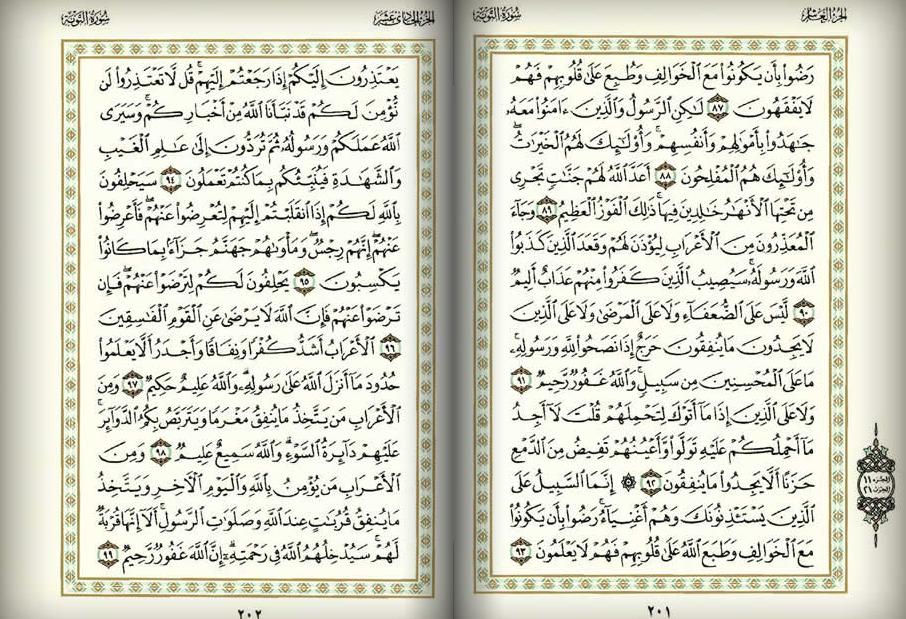 الجزء العاشر
سورة التوبة
رَضُوا۟ بِأَن يَكُونُوا۟ مَعَ ٱلْخَوَالِفِ وَطُبِعَ عَلَىٰ قُلُوبِهِمْ فَهُمْ
لَا يَفْقَهُونَ ٨٧ لَـٰكِنِ ٱلرَّسُولُ وَٱلَّذِينَ ءَامَنُوا۟ مَعَهُۥ
جَـٰهَدُوا۟ بِأَمْوَٰلِهِمْ وَأَنفُسِهِمْ ۚ وَأُو۟لَـٰٓئِكَ لَهُمُ ٱلْخَيْرَٰتُ ۖ
وَأُو۟لَـٰٓئِكَ هُمُ ٱلْمُفْلِحُونَ ٨٨ أَعَدَّ ٱللَّهُ لَهُمْ جَنَّـٰتٍ تَجْرِى
مِن تَحْتِهَا ٱلْأَنْهَـٰرُ خَـٰلِدِينَ فِيهَا ۚ ذَٰلِكَ ٱلْفَوْزُ ٱلْعَظِيمُ ٨٩ وَجَآءَ
ٱلْمُعَذِّرُونَ مِنَ ٱلْأَعْرَابِ لِيُؤْذَنَ لَهُمْ وَقَعَدَ ٱلَّذِينَ كَذَبُوا۟
ٱللَّهَ وَرَسُولَهُۥ ۚ سَيُصِيبُ ٱلَّذِينَ كَفَرُوا۟ مِنْهُمْ عَذَابٌ أَلِيمٌ
٩٠ لَّيْسَ عَلَى ٱلضُّعَفَآءِ وَلَا عَلَى ٱلْمَرْضَىٰ وَلَا عَلَى ٱلَّذِينَ
لَا يَجِدُونَ مَا يُنفِقُونَ حَرَجٌ إِذَا نَصَحُوا۟ لِلَّهِ وَرَسُولِهِۦ ۚ
مَا عَلَى ٱلْمُحْسِنِينَ مِن سَبِيلٍ ۚ وَٱللَّهُ غَفُورٌ رَّحِيمٌ ٩١
وَلَا عَلَى ٱلَّذِينَ إِذَا مَآ أَتَوْكَ لِتَحْمِلَهُمْ قُلْتَ لَآ أَجِدُ
مَآ أَحْمِلُكُمْ عَلَيْهِ تَوَلَّوا۟ وَّأَعْيُنُهُمْ تَفِيضُ مِنَ ٱلدَّمْعِ
حَزَنًا أَلَّا يَجِدُوا۟ مَا يُنفِقُونَ ٩٢ ۞ إِنَّمَا ٱلسَّبِيلُ عَلَى
ٱلَّذِينَ يَسْتَـْٔذِنُونَكَ وَهُمْ أَغْنِيَآءُ ۚ رَضُوا۟ بِأَن يَكُونُوا۟
مَعَ ٱلْخَوَالِفِ وَطَبَعَ ٱللَّهُ عَلَىٰ قُلُوبِهِمْ فَهُمْ لَا يَعْلَمُونَ ٩٣
الجزء ١١
الحزب ٢١
٢٠١
الجزء الحادى عشر
سورة التوبة
يَعْتَذِرُونَ إِلَيْكُمْ إِذَا رَجَعْتُمْ إِلَيْهِمْ ۚ قُل لَّا تَعْتَذِرُوا۟ لَن
نُّؤْمِنَ لَكُمْ قَدْ نَبَّأَنَا ٱللَّهُ مِنْ أَخْبَارِكُمْ ۚ وَسَيَرَى
ٱللَّهُ عَمَلَكُمْ وَرَسُولُهُۥ ثُمَّ تُرَدُّونَ إِلَىٰ عَـٰلِمِ ٱلْغَيْبِ
وَٱلشَّهَـٰدَةِ فَيُنَبِّئُكُم بِمَا كُنتُمْ تَعْمَلُونَ ٩٤ سَيَحْلِفُونَ
بِٱللَّهِ لَكُمْ إِذَا ٱنقَلَبْتُمْ إِلَيْهِمْ لِتُعْرِضُوا۟ عَنْهُمْ ۖ فَأَعْرِضُوا۟
عَنْهُمْ ۖ إِنَّهُمْ رِجْسٌ ۖ وَمَأْوَىٰهُمْ جَهَنَّمُ جَزَآءًۢ بِمَا كَانُوا۟
يَكْسِبُونَ ٩٥ يَحْلِفُونَ لَكُمْ لِتَرْضَوْا۟ عَنْهُمْ ۖ فَإِن
تَرْضَوْا۟ عَنْهُمْ فَإِنَّ ٱللَّهَ لَا يَرْضَىٰ عَنِ ٱلْقَوْمِ ٱلْفَـٰسِقِينَ
٩٦ ٱلْأَعْرَابُ أَشَدُّ كُفْرًا وَنِفَاقًا وَأَجْدَرُ أَلَّا يَعْلَمُوا۟
حُدُودَ مَآ أَنزَلَ ٱللَّهُ عَلَىٰ رَسُولِهِۦ ۗ وَٱللَّهُ عَلِيمٌ حَكِيمٌ ٩٧ وَمِنَ
ٱلْأَعْرَابِ مَن يَتَّخِذُ مَا يُنفِقُ مَغْرَمًا وَيَتَرَبَّصُ بِكُمُ ٱلدَّوَآئِرَ ۚ
عَلَيْهِمْ دَآئِرَةُ ٱلسَّوْءِ ۗ وَٱللَّهُ سَمِيعٌ عَلِيمٌ ٩٨ وَمِنَ
ٱلْأَعْرَابِ مَن يُؤْمِنُ بِٱللَّهِ وَٱلْيَوْمِ ٱلْـَٔاخِرِ وَيَتَّخِذُ
مَا يُنفِقُ قُرُبَـٰتٍ عِندَ ٱللَّهِ وَصَلَوَٰتِ ٱلرَّسُولِ ۚ أَلَآ إِنَّهَا قُرْبَةٌ
لَّهُمْ ۚ سَيُدْخِلُهُمُ ٱللَّهُ فِى رَحْمَتِهِۦٓ ۗ إِنَّ ٱللَّهَ غَفُورٌ رَّحِيمٌ ٩٩
٢٠٢